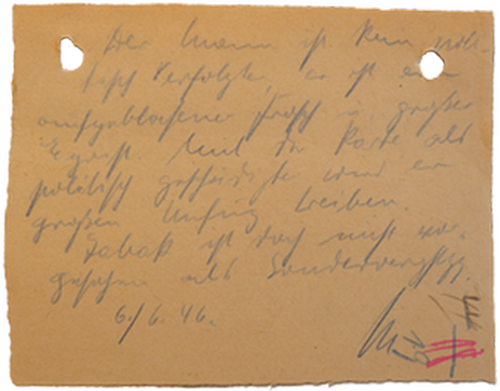 Der Mann ist kein poli-
tisch Verfolgter, er ist ein
aufgeblasener Frosch u. großer
Egoist. Mit der Karte als
politisch geschädigter wird er
großen Unfug treiben.
Tabak ist doch nicht vor-
gesehen als Sonderverpflgg.
6./6. 46.